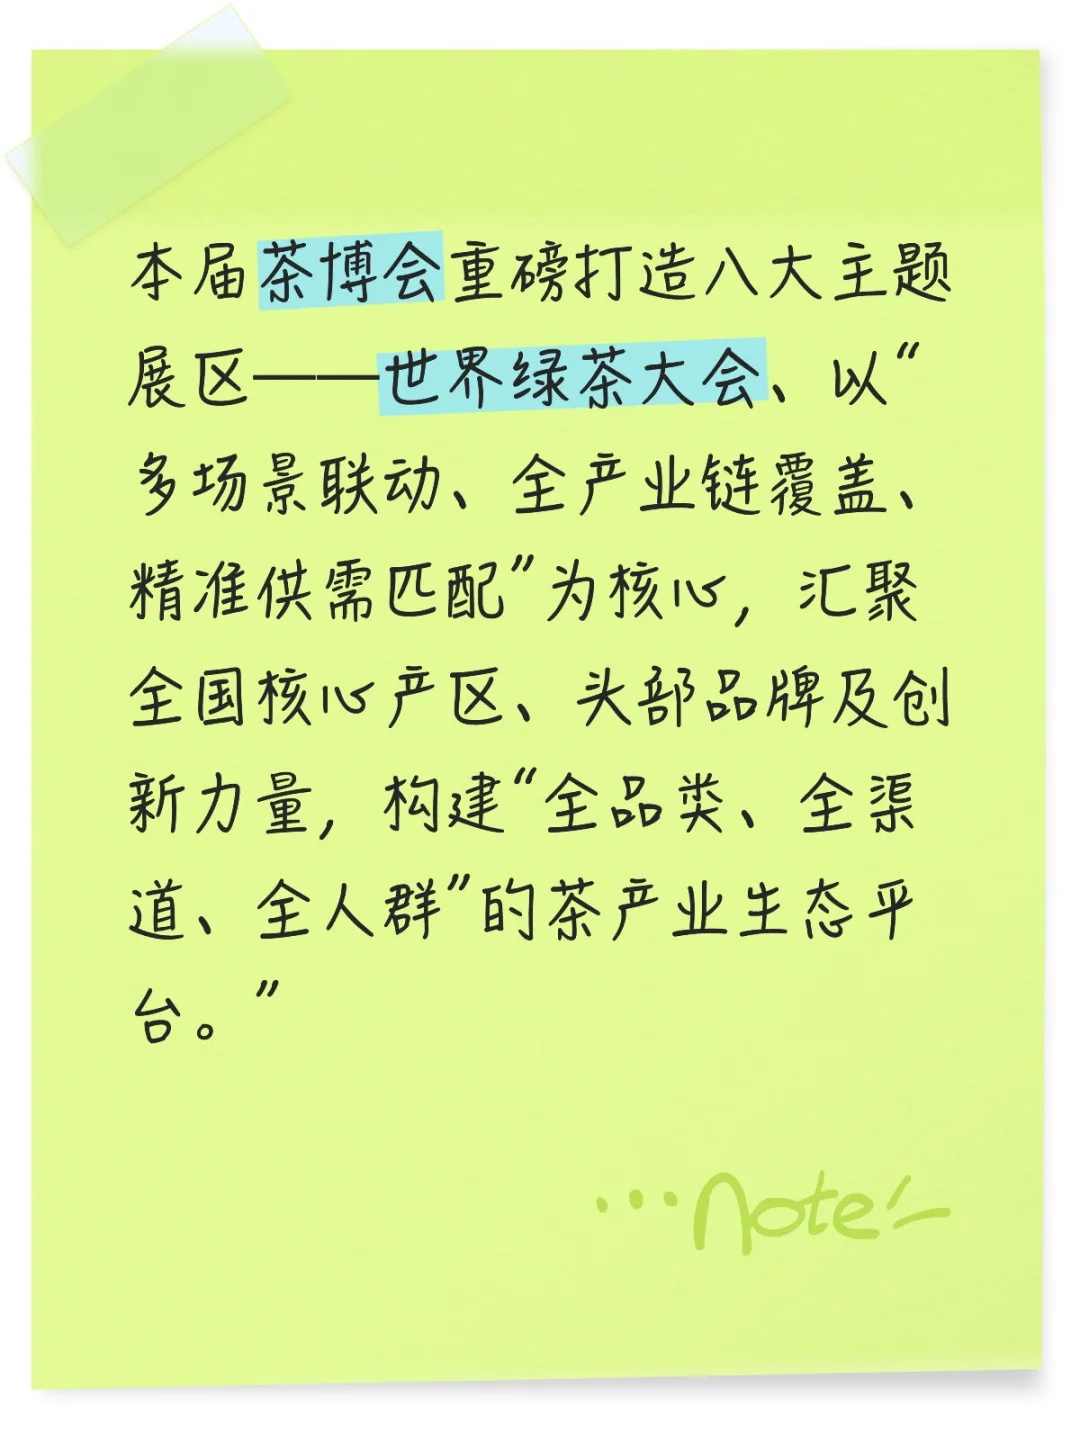 本届茶博会重磅打造八大主题
展区——世界绿茶大会、以“
多场景联动、全产业链覆盖、
精准供需匹配”为核心，汇聚
全国核心产区、头部品牌及创
新力量，构建“全品类、全渠
道、全人群”的茶产业生态平
台。”
...note